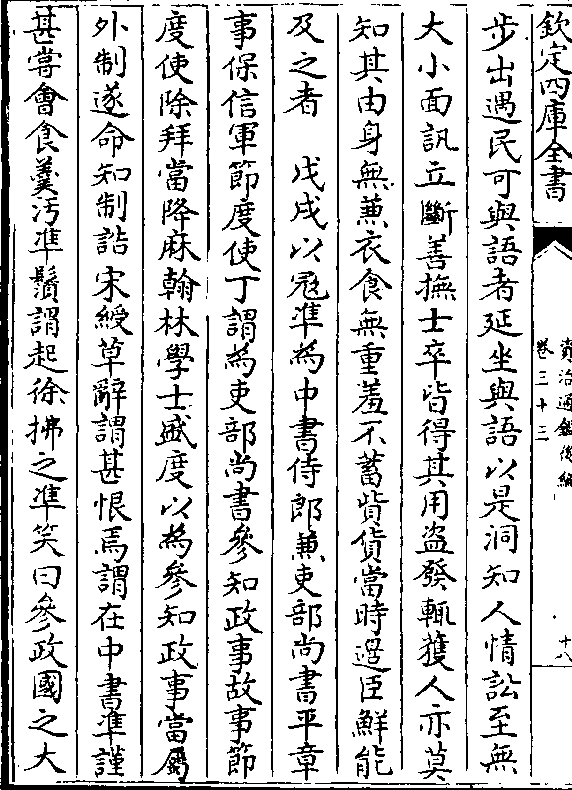 欽定四庫全書
資治通鑑後編
卷三十三
十八
步出遇民可與語者延坐與語以是洞知人情訟至無
大小面訊立斷善撫士卒皆得其用盜發輒獲人亦莫
知其由身無兼衣食無重羞不蓄貲貨當時邊臣鮮能
及之者　戊戌以冦準為中書侍郎兼吏部尚書平章
事保信軍節度使丁謂為吏部尚書參知政事故事節
度使除拜當降麻翰林學士盛度以為參知政事當屬
外制遂命知制誥宋綬草辭謂甚恨焉謂在中書準謹
甚嘗會食羮汚準鬚謂起徐拂之準笑曰參政國之大